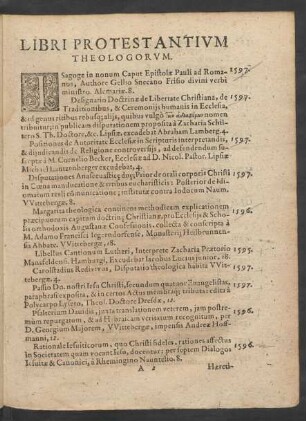 LIBRI PROTESTANTIVM
THEOLOGORVM.
ISagoge in nonum Caput Epistolæ Pauli ad Roma- 1597.
nos, Authore Gellio Snecano Frisio divini verbi
ministro. Alcmariæ. 8.
Designatio Doctrinæ de Libertate Christiana, de 1597.
Traditionibus, & Ceremonijs humanis in Ecclesia,
& ed genus ritibus rebusque alijs, quibus vulgò nomen
tribuitur, in publicam disputationem proposita à Zacharia Schil-
tero S. Th. Doctore, &c. Lipsiæ excudebat Abraham Lamberg. 4.
Positiones de Autoritate Ecclesiæ in Scripturis interpretandis, 1597.
& dijudicandis de Religione controversijs, ad defendendum
scriptæ à M. Cornelio Becker, Ecclesiæ ad D. Nicol. Pastor. Lipsiæ
Michael Lantzenberger excudebat. 4.
Disputationes duæ, Prior de orali corporis Christi 1597.
in Cœna manducatione & eius eucharisticis: Posterior de
contra Iudæum Naum.
VVitebergæ. 8.
Margarita theologica continens methodicam explicationem 1596.
præcipuorum capitum doctrinæ Christianæ, pro Ecclesijs & Scho-
lis orthodoxis Augustanæ Confessionis, collecta & conscripta à
M. Adamo Francisci Iegerndorfensi, Monasterij Heilsbrunnen-
sis Abbate. VVitebergæ, 18.
Libellus Cantionum Lutheri, Interprete Zacharia Prætorio 1595.
Mansfeldensi. Hamburgi, Excudebat Iacobus Lucius junior. 18.
Carolstadius Redivivus, Disputatio theologica habita VVit- 1597.
tebergæ. 4.
Passio Dn. nostri Iesu Christi, secundum quatuor Evangelistas, 1597.
paraphrasi exposita, & in certos Actus tributa à
Polycarpo Lysero. Theol. Doctore Dresdæ, 12.
Psalterium Davidis, juxta translationem veterem, jam postre-
mùm repurgatum, & ad Hebraicam veritatem recognitum, per 1596.
D. Georgium Majorem, VVitebergæ, impensis Andreæ Hoff-
manni, 12.
Rationale Iesuiticorum, quo Christi fideles, rationes affectus
in Societatem quam vocant Iesu, docentur: per septem Dialogos 1596.
Iesuitæ & Canonici, à Rhemingino Nauntesio. 8.
A 2 Hæresi-